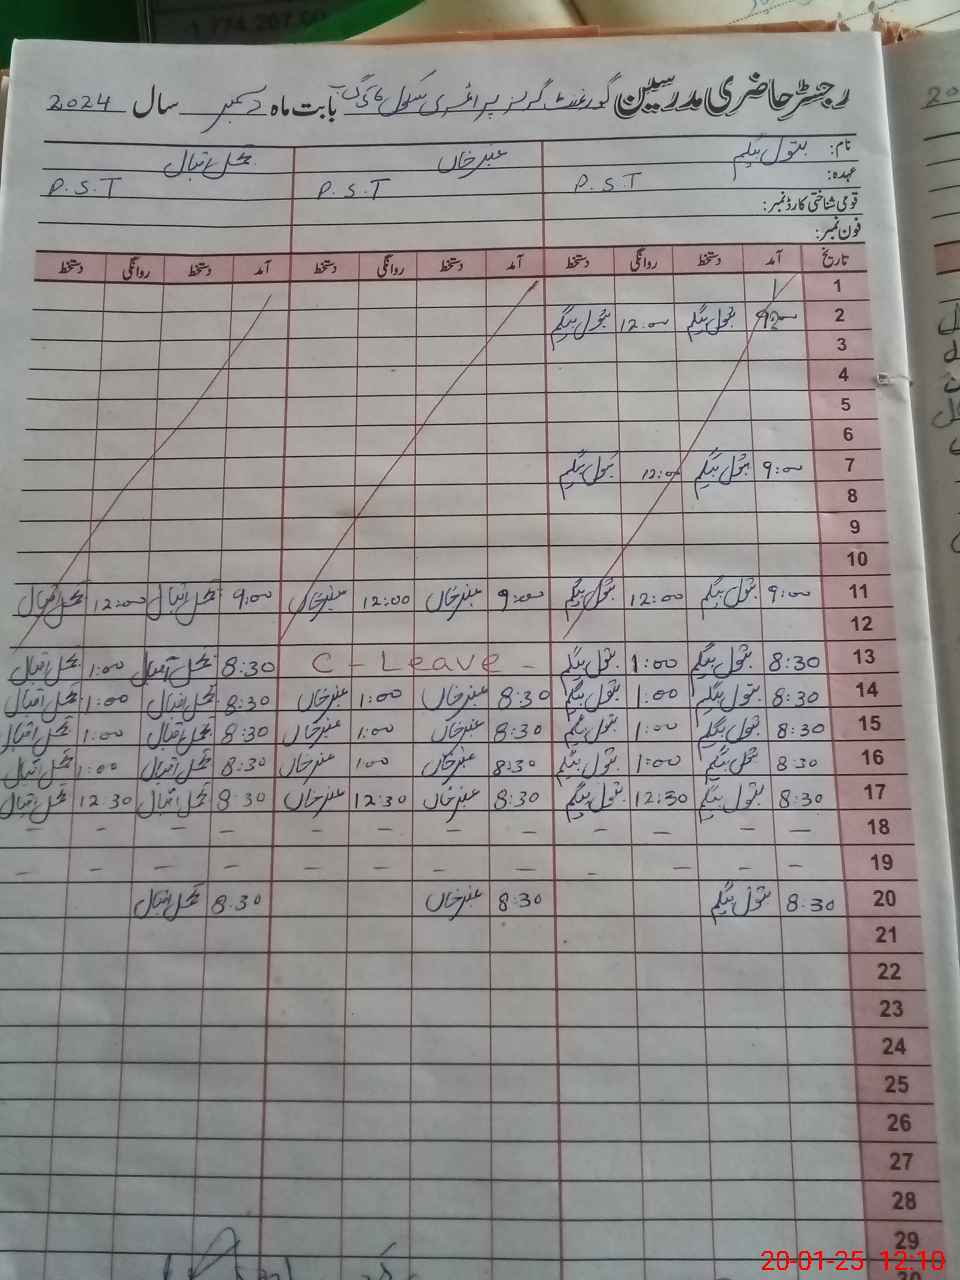 1,774,207.00
رجسٹر حاضری مدرسین گورنمنٹ گرلز پرائمری سکول بابت ماہ دسمبر سال 2024
نام: بتول بیگم عنبر خان گل اقبال
عہدہ: P.S.T P.S.T P.S.T
قومی شناختی کارڈ نمبر:
فون نمبر:
تاریخ آمد دستخط روانگی دستخط آمد دستخط روانگی دستخط آمد دستخط روانگی دستخط
1
2 9:00 بتول بیگم 12:00 بتول بیگم
3
4
5
6
7 9:00 بتول بیگم 12:00 بتول بیگم
8
9
10
11 9:00 بتول بیگم 12:00 بتول بیگم 9:00 عنبر خان 12:00 عنبر خان 9:00 گل اقبال 12:00 گل اقبال
12
13 8:30 بتول بیگم 1:00 بتول بیگم C - Leave - 8:30 گل اقبال 1:00 گل اقبال
14 8:30 بتول بیگم 1:00 بتول بیگم 8:30 عنبر خان 1:00 عنبر خان 8:30 گل اقبال 1:00 گل اقبال
15 8:30 بتول بیگم 1:00 بتول بیگم 8:30 عنبر خان 1:00 عنبر خان 8:30 گل اقبال 1:00 گل اقبال
16 8:30 بتول بیگم 1:00 بتول بیگم 8:30 عنبر خان 1:00 عنبر خان 8:30 گل اقبال 1:00 گل اقبال
17 8:30 بتول بیگم 12:30 بتول بیگم 8:30 عنبر خان 12:30 عنبر خان 8:30 گل اقبال 12:30 گل اقبال
18 – – – – – – – – – – – –
19 – – – – – – – – – – – –
20 8:30 بتول بیگم 8:30 عنبر خان 8:30 گل اقبال
21
22
23
24
25
26
27
28
29
30
20-01-25 12:10